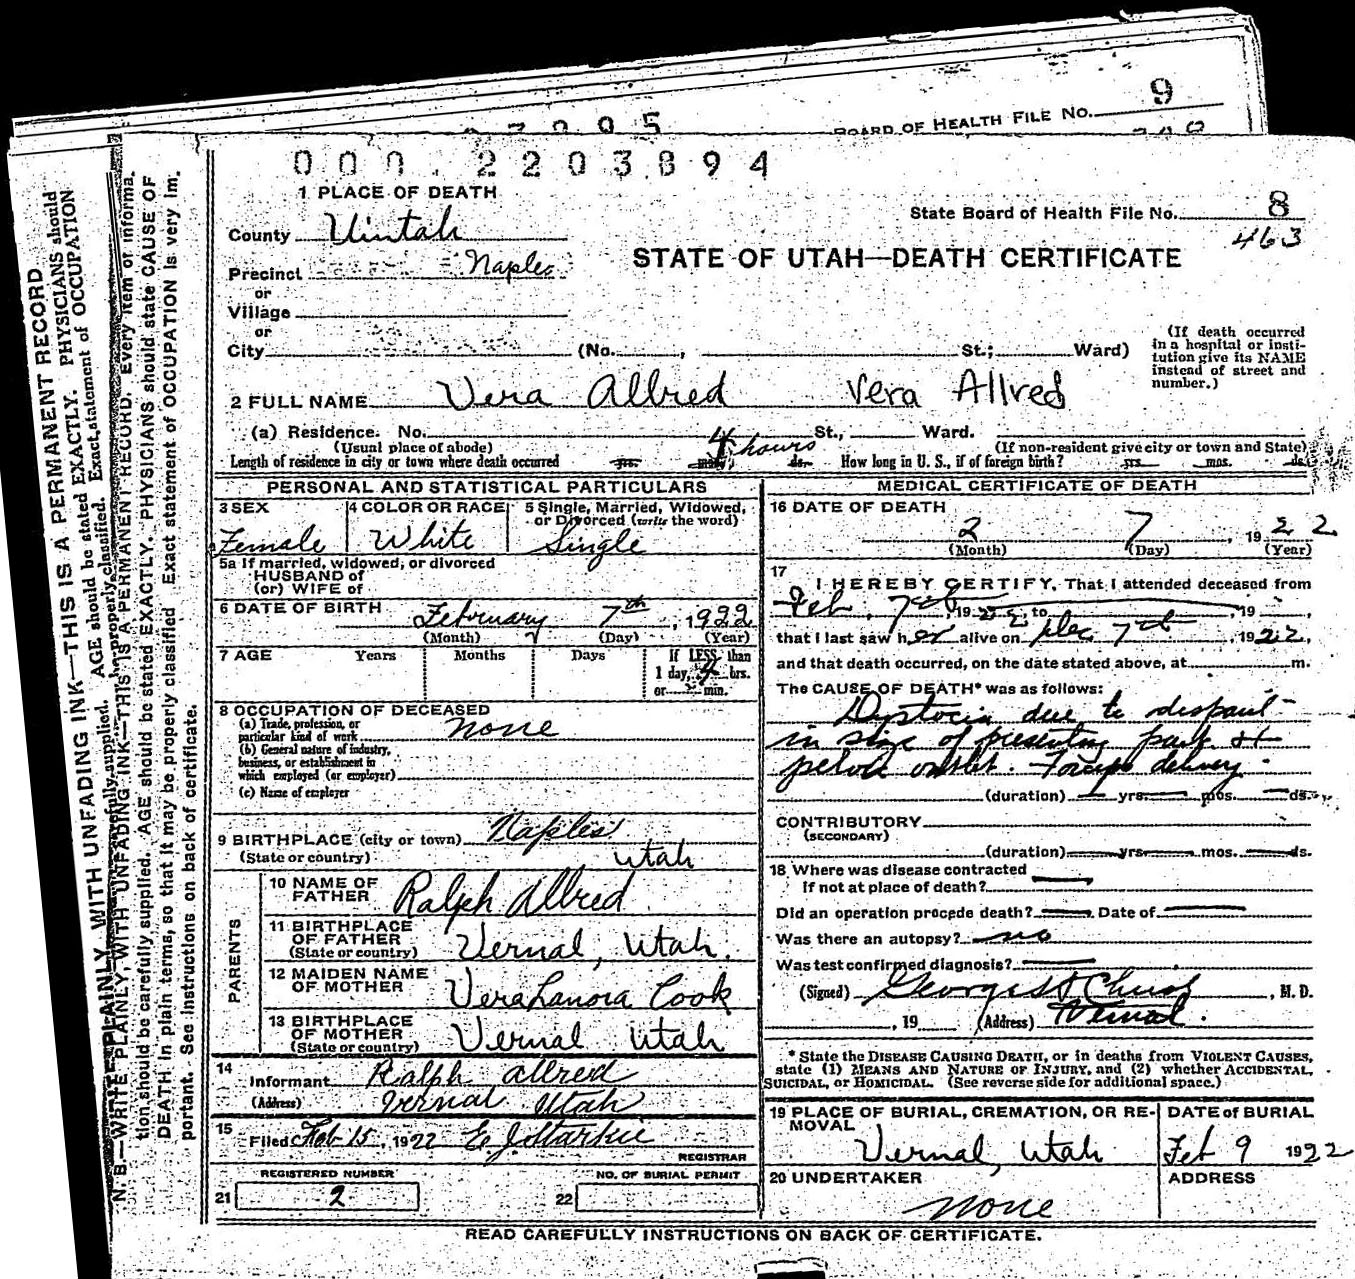 9
BOARD OF HEALTH FILE No.
000.2203894
1 PLACE OF DEATH
State Board of Health File No. 8
463
County Uintah
STATE OF UTAH—DEATH CERTIFICATE
Precinct Naples
or
Village
or
City (No. , St.; Ward)
(If death occurred in a hospital or insti-
tution give its NAME
instead of street and
number.)
2 FULL NAME Vera Allred Vera Allred
(a) Residence. No. St., Ward.
(Usual place of abode) (If non-resident give city or town and State)
Length of residence in city or town where death occurred yrs. mos. 4 hours ds. How long in U. S., if of foreign birth? yrs. mos. ds.
PERSONAL AND STATISTICAL PARTICULARS
3 SEX
Female
4 COLOR OR RACE
White
5 Single, Married, Widowed,
or Divorced (write the word)
Single
5a If married, widowed, or divorced
HUSBAND of
(or) WIFE of
6 DATE OF BIRTH February 7th, 1922
(Month) (Day) (Year)
7 AGE Years Months Days If LESS than
1 day, 4 hrs.
or min.
8 OCCUPATION OF DECEASED
(a) Trade, profession, or
particular kind of work none
(b) General nature of industry,
business, or establishment in
which employed (or employer)
(c) Name of employer
9 BIRTHPLACE (city or town) Naples
(State or country) Utah
PARENTS
10 NAME OF
FATHER Ralph Allred
11 BIRTHPLACE
OF FATHER
(State or country) Vernal, Utah.
12 MAIDEN NAME
OF MOTHER Vera Lanora Cook
13 BIRTHPLACE
OF MOTHER
(State or country) Vernal Utah
14
Informant Ralph Allred
(Address) Vernal Utah
15
Filed Feb 15, 1922 E. J. Starkie
REGISTRAR
REGISTERED NUMBER
21 2
NO. OF BURIAL PERMIT
22
MEDICAL CERTIFICATE OF DEATH
16 DATE OF DEATH
2 7, 1922
(Month) (Day) (Year)
17
I HEREBY CERTIFY, That I attended deceased from
Feb, 7th, 1922, to 19 ,
that I last saw her alive on 7th, 1922,
and that death occurred, on the date stated above, at m.
The CAUSE OF DEATH* was as follows:
Dystocia due to disparit-
in size of presenting part &
pelvic outlet. Forceps delivery.
(duration) yrs. mos. ds.
CONTRIBUTORY
(SECONDARY)
(duration) yrs. mos. ds.
18 Where was disease contracted
If not at place of death?
Did an operation precede death? Date of
Was there an autopsy? no
Was test confirmed diagnosis?
(Signed) George , M. D.
, 19 (Address) Vernal.
* State the DISEASE CAUSING DEATH, or in deaths from VIOLENT CAUSES,
state (1) MEANS AND NATURE OF INJURY, and (2) whether ACCIDENTAL,
SUICIDAL, or HOMICIDAL. (See reverse side for additional space.)
19 PLACE OF BURIAL, CREMATION, OR RE-
MOVAL
Vernal, Utah
DATE of BURIAL
Feb 9 1922
20 UNDERTAKER
none
ADDRESS
READ CAREFULLY INSTRUCTIONS ON BACK OF CERTIFICATE.
N. B.—WRITE PLAINLY, WITH UNFADING INK—THIS IS A PERMANENT RECORD. Every item of informa-
tion should be carefully supplied. AGE should be stated EXACTLY. PHYSICIANS should state CAUSE OF
DEATH in plain terms, so that it may be properly classified. Exact statement of OCCUPATION is very im-
portant. See instructions on back of certificate.